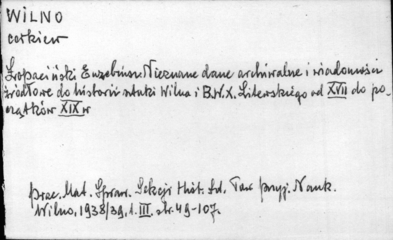 WILNO
cerkiew
Łopaciński Euzebiusz Nieznane dane archiwalne i wiadomości
źródłowe do historii sztuki Wilna i B.W.X. Litewskiego od XVII do po-
czątków XIX w
Prac. Mat. Spraw. Sekcji Hist. Szt. Tow. przyj. Nauk.
Wilno, 1938/39, t. III, str. 49-107.